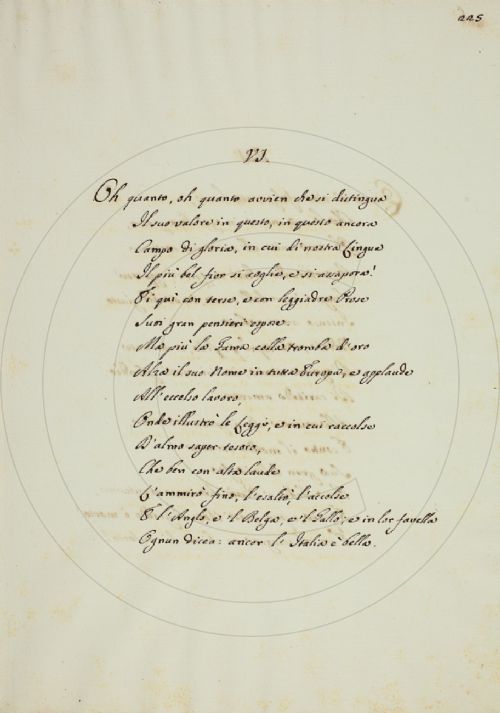 225
VI.
Oh quanto, oh quanto avvien che si distingua
Il suo valore in questo, in questo ancora
Campo di gloria, in cui di nostra Lingua
Il più bel fior si coglie, e si assapora!
Ei qui con terse, e con leggiadre Prose
Suoi gran pensieri espose.
Ma più la Fama colla tromba d'oro
Alza il suo Nome in tutta Europa, e applaude
All'eccelso lavoro,
Onde illustrò le Leggi, e in cui raccolse
D'almo saper tesoro,
Che ben con alta laude
L'ammirò fino, l'esaltò, l'accolse
E l'Anglo, e 'l Belga, e 'l Gallo; e in lor favella
Ognun dicea: ancor l'Italia è bella.